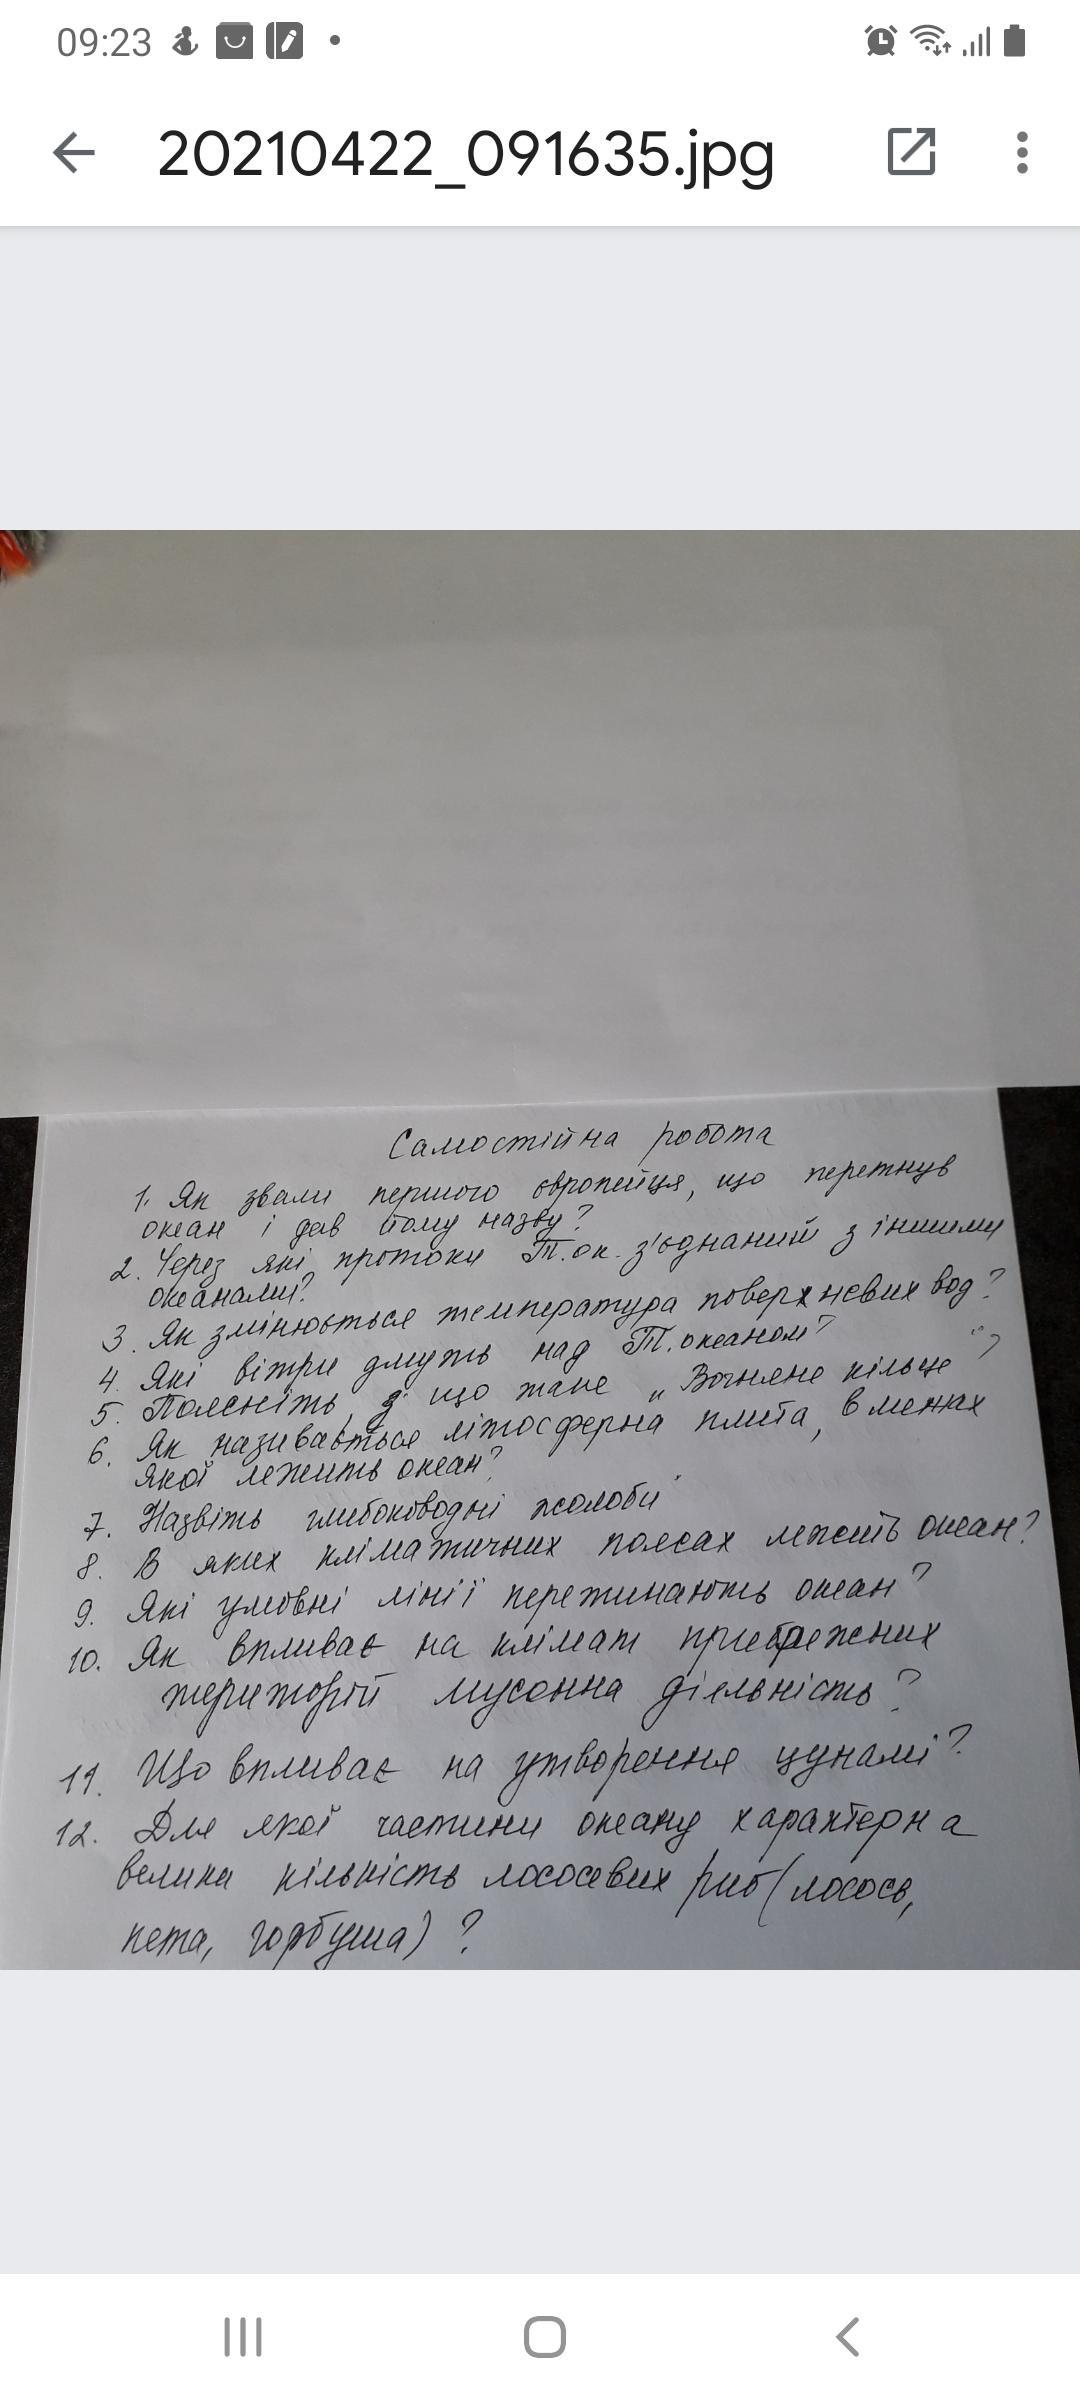 09:23
20210422_091635.jpg
Самостійна робота
1. Як звали першого європейця, що перетнув
океан і дав йому назву?
2. Через які протоки Т.ок. з'єднаний з іншими
океанами?
3. Як змінюється температура поверхневих вод?
4. Які вітри дмуть над Т. океаном?
5. Поясніть, що таке „Вогняне кільце"?
6. Як називається літосферна плита, в межах
якої лежить океан?
7. Назвіть глибоководні жолоби
8. В яких кліматичних поясах лежить океан?
9. Які умовні лінії перетинають океан?
10. Як впливає на клімат прибережних
територій мусонна діяльність?
11. Що впливає на утворення цунамі?
12. Для якої частини океану характерна
велика кількість лососевих риб (лосось,
кета, горбуша)?